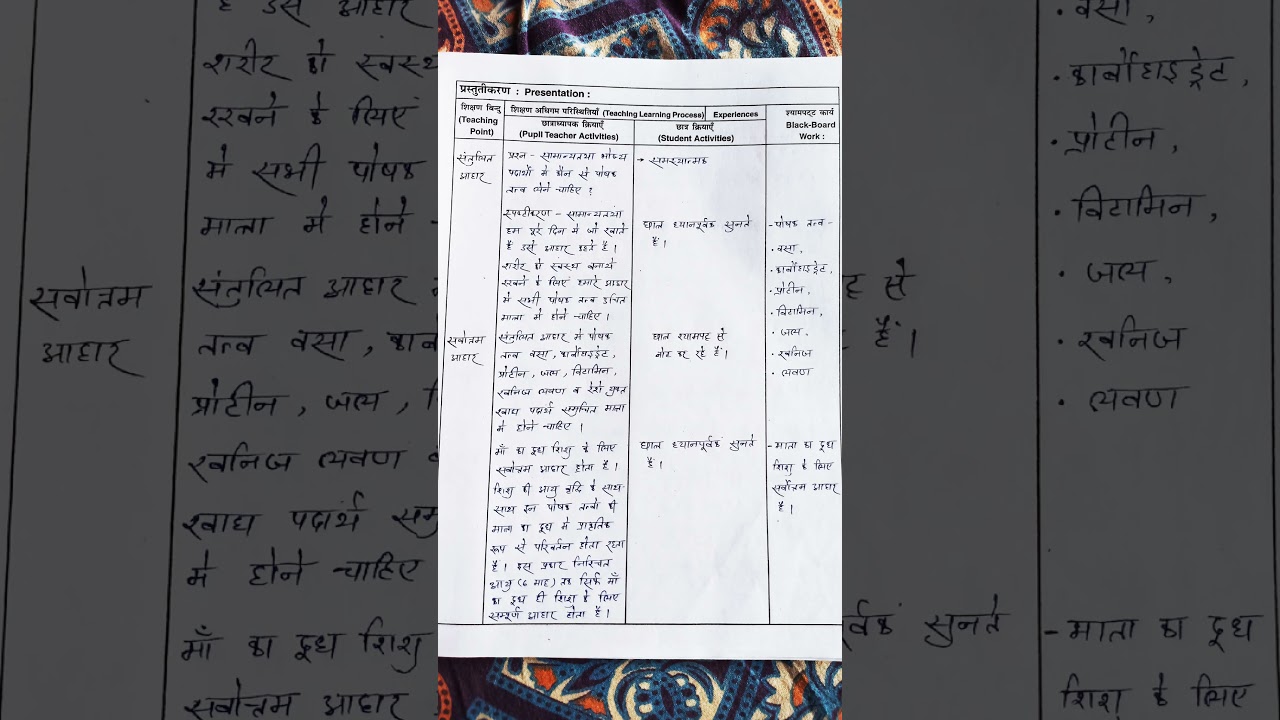 प्रस्तुतीकरण : Presentation :
शिक्षण बिन्दु
(Teaching
Point)
शिक्षण अधिगम परिस्थितियाँ (Teaching Learning Process)
Experiences
छात्राध्यापक क्रियाएँ
(Pupil Teacher Activities)
छात्र क्रियाएँ
(Student Activities)
श्यामपट्ट कार्य
Black-Board
Work :
संतुलित
आहार
प्रश्न - सामान्यतया भोज्य
पदार्थो मे कौन से पोषक
तत्व लेने चाहिए ?
→ समस्यात्मक
स्पष्टीकरण - सामान्यतया
हम पूरे दिन मे जो खाते
है उसे आहार कहते है ।
शरीर को स्वस्थ बनाये
रखने के लिएं हमारे आहार
मे सभी पोषक तत्व उचित
मात्रा मे होने चाहिए ।
छात्र ध्यानपूर्वक सुनते
हैं ।
- पोषक तत्व -
· वसा,
· कार्बोहाइड्रेट,
· प्रोटीन,
· विटामिन,
· जल,
· खनिज
· लवण
सर्वोत्तम
आहार
संतुलित आहार मे पोषक
तत्व वसा, कार्बोहाइड्रेट,
प्रोटीन, जल, विटामिन,
खनिज लवण व रेशे युक्त
खाद्य पदार्थ समुचित मात्रा
मे होने चाहिए ।
छात्र श्यामपट से
नोट कर रहे हैं ।
माँ का दूध शिशु के लिए
सर्वोत्तम आहार होता है ।
शिशु की आयु वृद्धि के साथ-
साथ इन पोषक तत्वो की
मात्रा का दूध मे प्राकृतिक
रूप से परिवर्तन होता रहता
है । इस प्रकार निश्चित
आयु (6 माह) तक सिर्फ माँ
का दूध ही शिशु के लिए
सम्पूर्ण आहार होता है ।
छात्र ध्यानपूर्वक सुनते
हैं ।
- माता का दूध
शिशु के लिए
सर्वोत्तम आहार
है ।